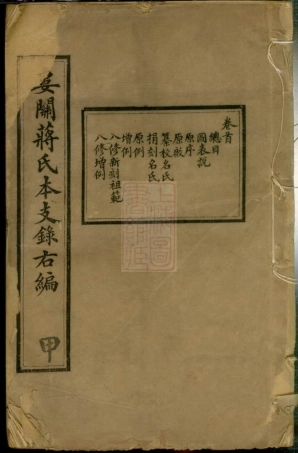 婁關蔣氏本支錄右編
甲
卷首
總目
圖表說
原序
原啟
纂校名氏
捐刻名氏
原例
增例
八修新刻祖範
八修增例